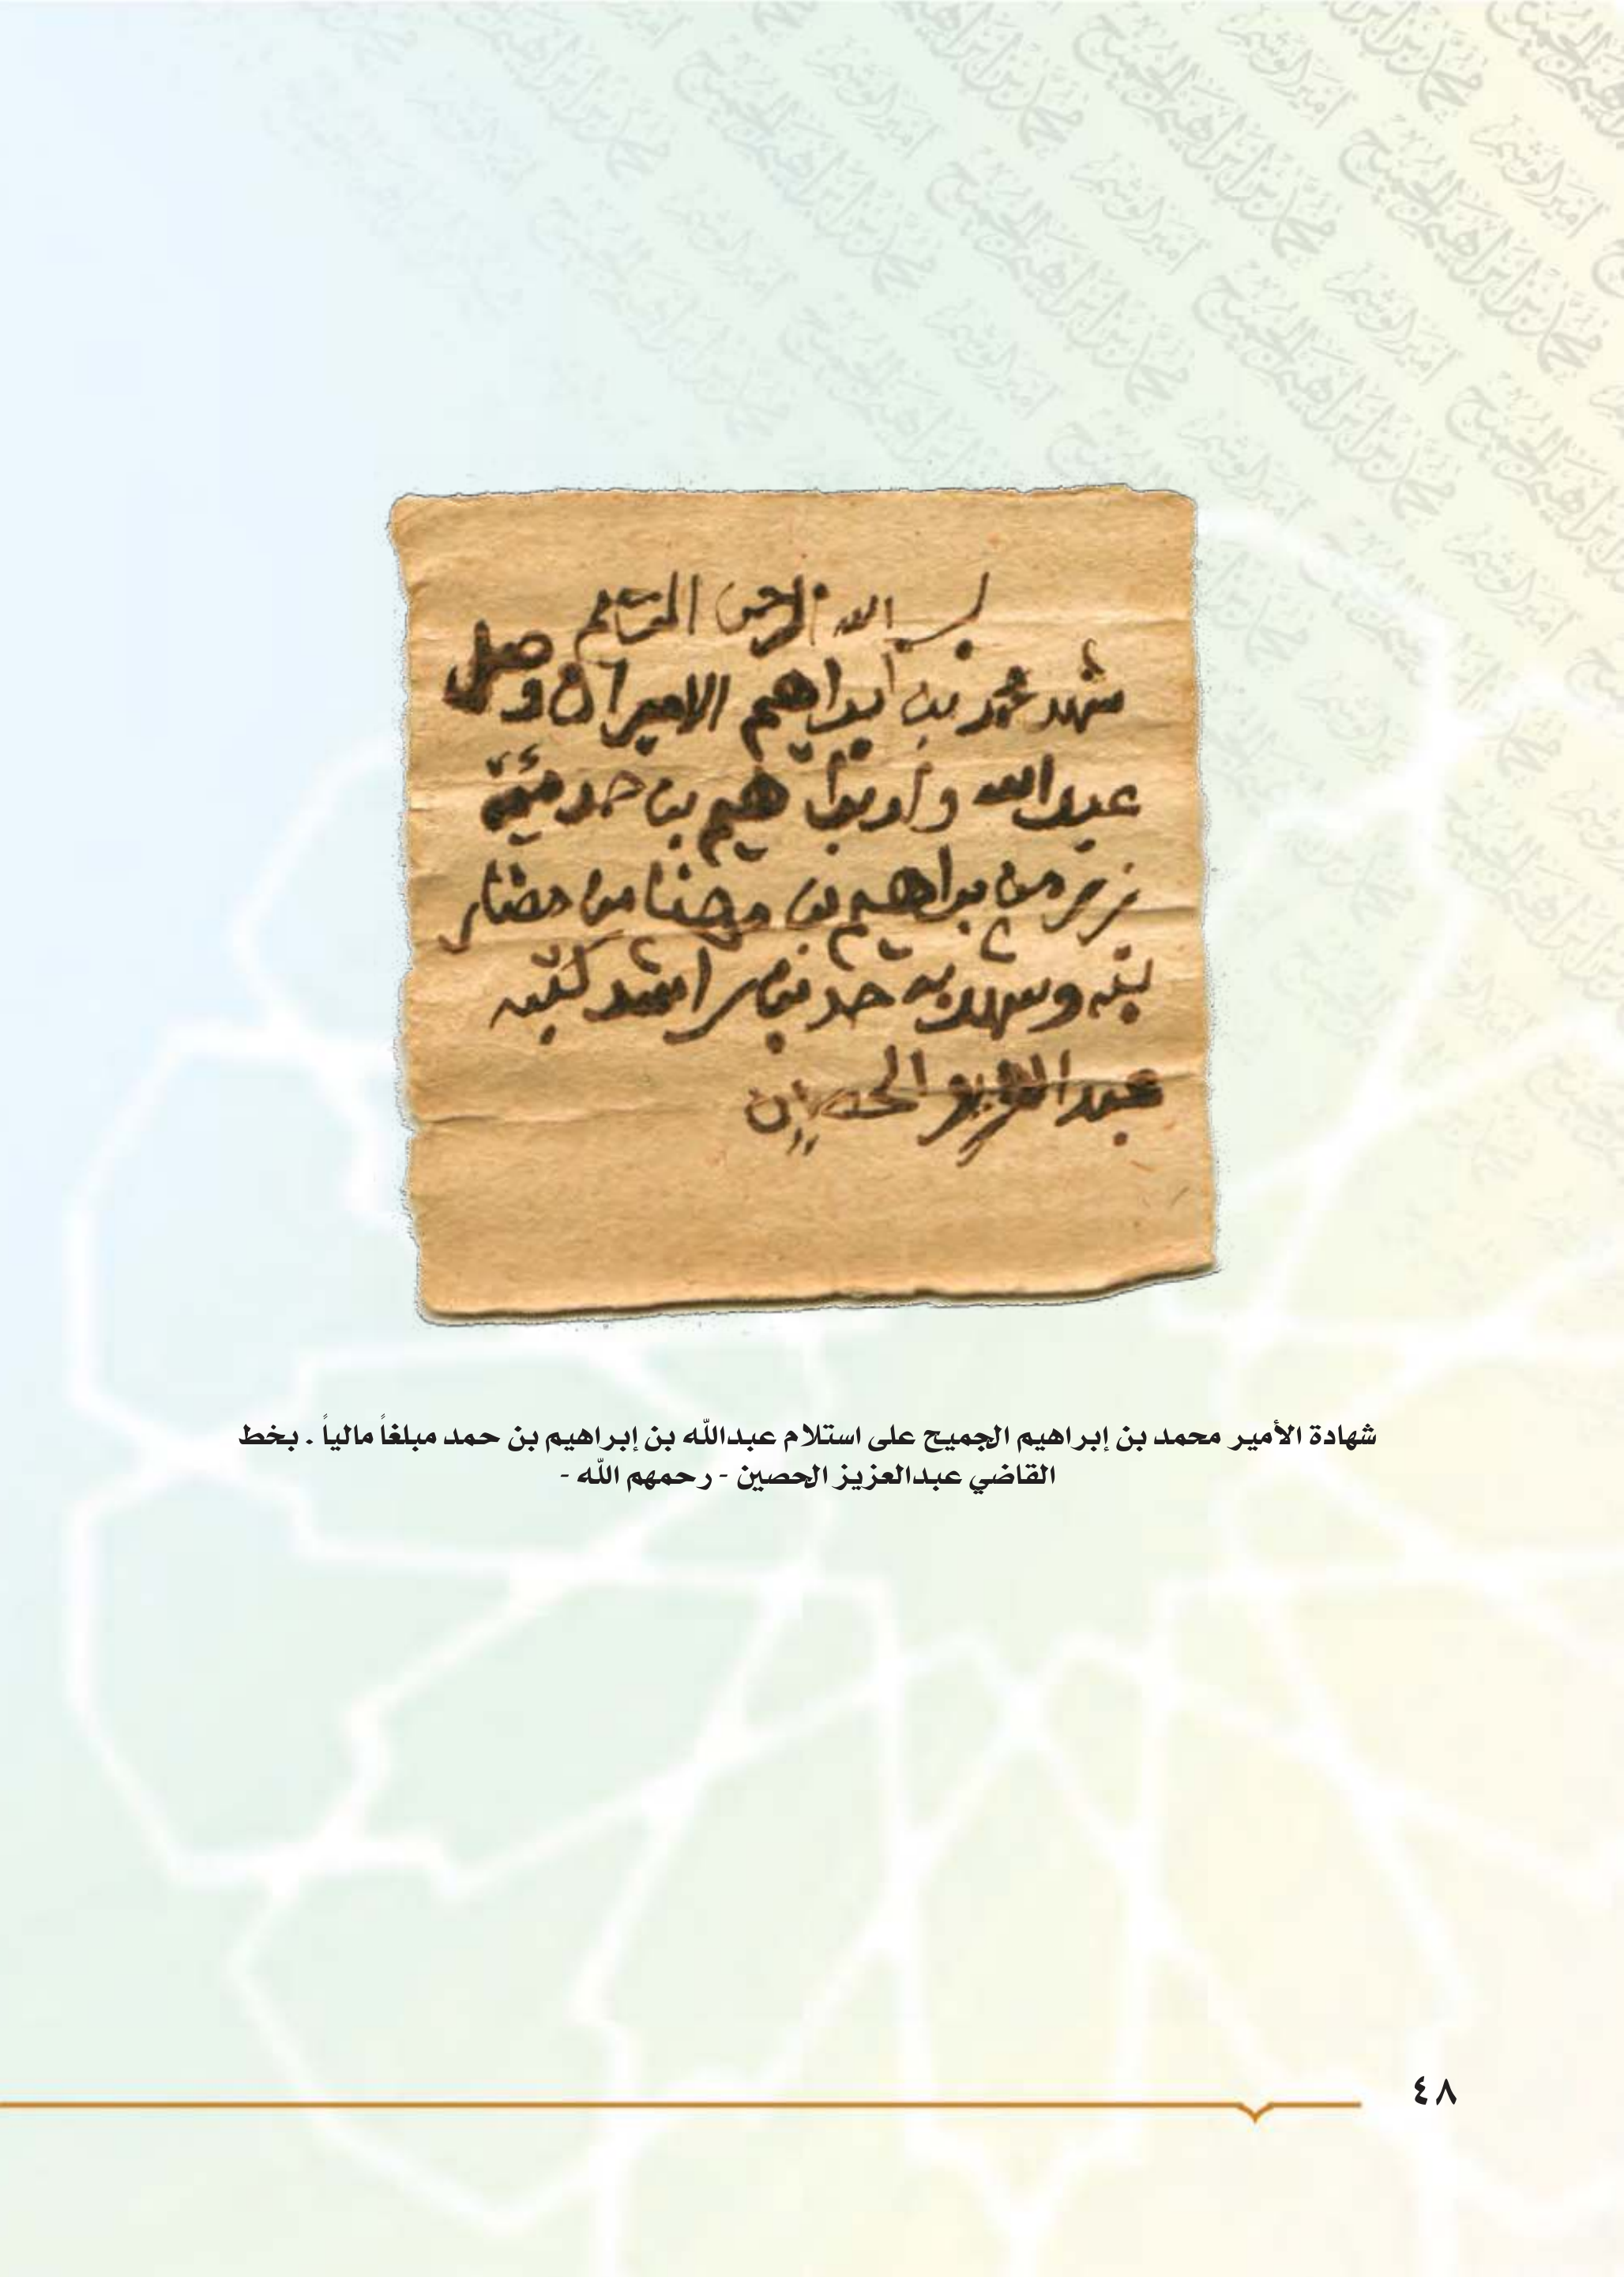 بسم الله الرحمن الرحيم
شهد محمد بن ابراهيم الامير ان وصل
عبدالله ولد ابراهيم بن حمد مئة
زر من براهيم بن مهنا من
بنته وشهد به حمد بن راشد كتبه
عبدالعزيز الحصين
شهادة الأمير محمد بن إبراهيم الجميح على استلام عبدالله بن إبراهيم بن حمد مبلغاً مالياً . بخط
القاضي عبدالعزيز الحصين - رحمهم الله -
٤٨